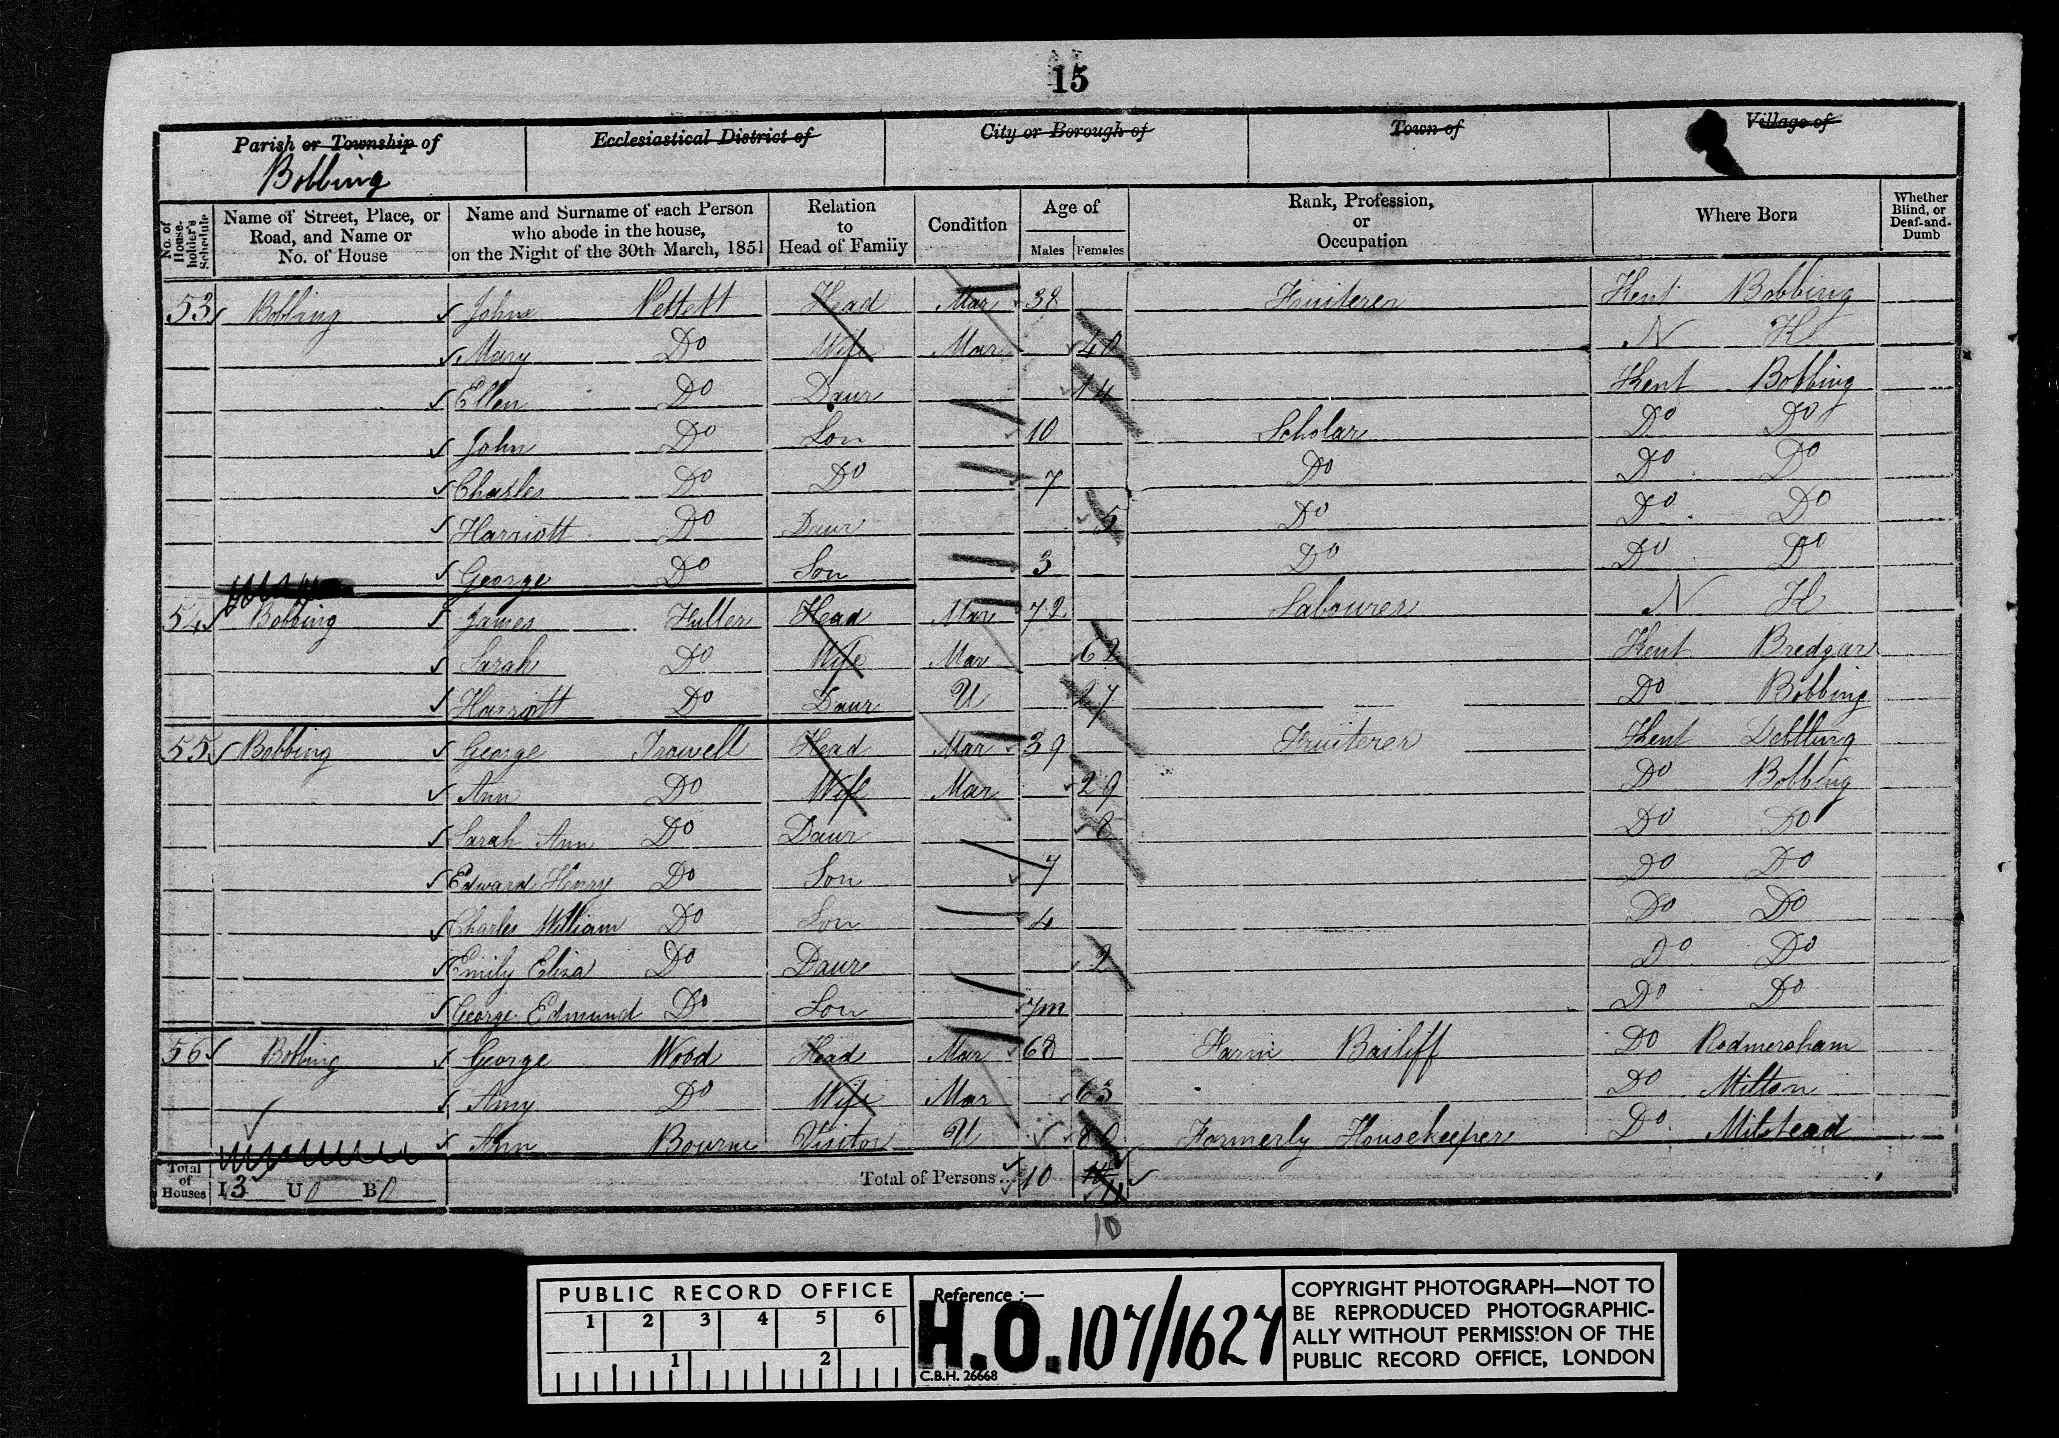 15
Parish or Township of Ecclesiastical District of City or Borough of Town of Village of
Bobbing
No. of House-holder's Schedule Name of Street, Place, or Road, and Name or No. of House Name and Surname of each Person who abode in the house, on the Night of the 30th March, 1851 Relation to Head of Family Condition Age of Males Females Rank, Profession, or Occupation Where Born Whether Blind, or Deaf-and-Dumb
53 Bobbing John Nettett Head Mar 38 Fruiterer Kent Bobbing
Mary Do Wife Mar 40 N K
Ellen Do Daur 14 Kent Bobbing
John Do Son 10 Scholar Do Do
Charles Do Do 7 Do Do Do
Harriott Do Daur 5 Do Do Do
George Do Son 3 Do Do Do
54 Bobbing James Fuller Head Mar 72 Labourer N K
Sarah Do Wife Mar Kent Bredgar
Harriott Do Daur U 27 Do Bobbing
55 Bobbing George Trowell Head Mar 39 Fruiterer Kent Debtling
Ann Do Wife Mar 29 Do Bobbing
Sarah Ann Do Daur 8 Do Do
Edward Henry Do Son 7 Do Do
Charles William Do Son 4 Do Do
Emily Eliza Do Daur 2 Do Do
George Edmund Do Son 7m Do Do
56 Bobbing George Wood Head Mar 68 Farm Bailiff Do Rodmersham
Amy Do Wife Mar 63 Do Milton
Ann Bourne Visitor U 80 Formerly Housekeeper Do Milstead
Total of Houses I 3 U 0 B 0 Total of Persons 10 11
10
PUBLIC RECORD OFFICE
1 2 3 4 5 6
1 2
Reference :—
H.O. 107/1627
C.B.H. 26668
COPYRIGHT PHOTOGRAPH—NOT TO
BE REPRODUCED PHOTOGRAPHIC-
ALLY WITHOUT PERMISSION OF THE
PUBLIC RECORD OFFICE, LONDON